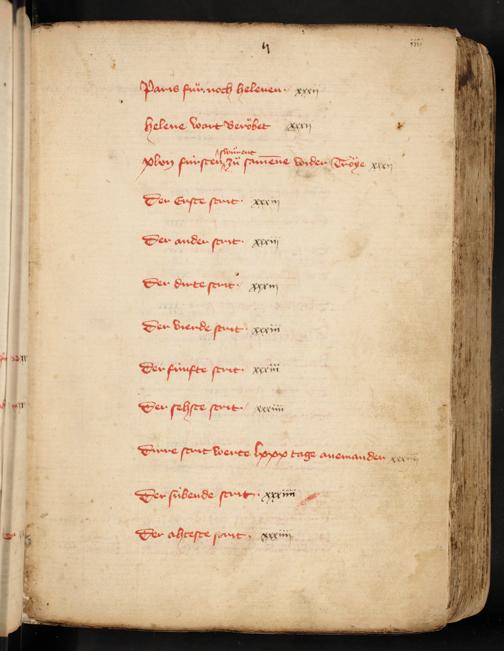 iiii
Paris fůr noch helenen xxxij
helene wart berőbet xxxij
swůrent
xlvn fúrsten zů samēne wider Troÿe xxxij
Der Erste strit xxxiij
Der ander strit xxxiij
Der dirte strit xxxiij
Der vierde strit xxxiij
Der fúnfte strit xxxiij
Der sehste strit xxxiiij
Dirre strit werte lxxx tage aneinander
Der súbende strit xxxiiij
Der ahteste strit xxxiiij